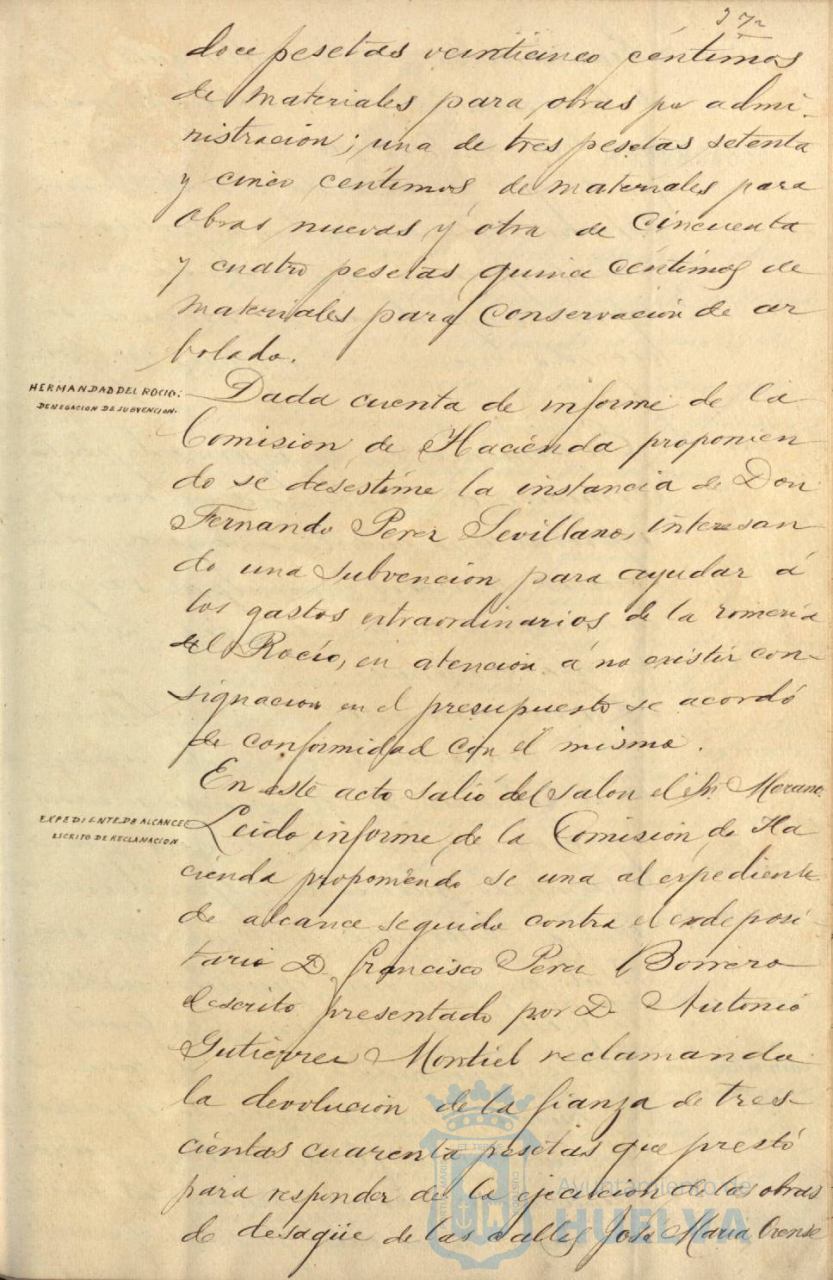 37
doce pesetas veinticinco céntimos
de materiales para obras por admi-
nistracion; una de tres pesetas setenta
y cinco centimos de materiales para
obras nuevas y otra de cincuenta
y cuatro pesetas quince céntimos de
materiales para conservacion de ar
bolado.
HERMANDAD DEL ROCIO:
DENEGACION DE SUBVENCION.
Dada cuenta de informe de la
Comision de Hacienda proponien
do se desestime la instancia de Don
Fernando Perez Sevillano, interesan
do una subvencion para ayudar á
los gastos extraordinarios de la romeria
del Rocío, en atencion á no existir con-
signacion en el presupuesto se acordó
de conformidad con el mismo.
En este acto salió del salon el Sr. Morano
EXPEDIENTE DE ALCANCE
ESCRITO DE RECLAMACION
Leido informe de la Comision de Ha
cienda proponiendo se una al expediente
de alcance seguido contra el exdeposi-
tario D. Francisco Perez Borrero
el escrito presentado por D. Antonio
Gutierrez Montiel reclamando
la devolucion de la fianza de tres-
cientas cuarenta pesetas que prestó
para responder de la ejecucion de las obras
de desagüe de las calles José Maria Orense
Ayuntamiento de
HUELVA